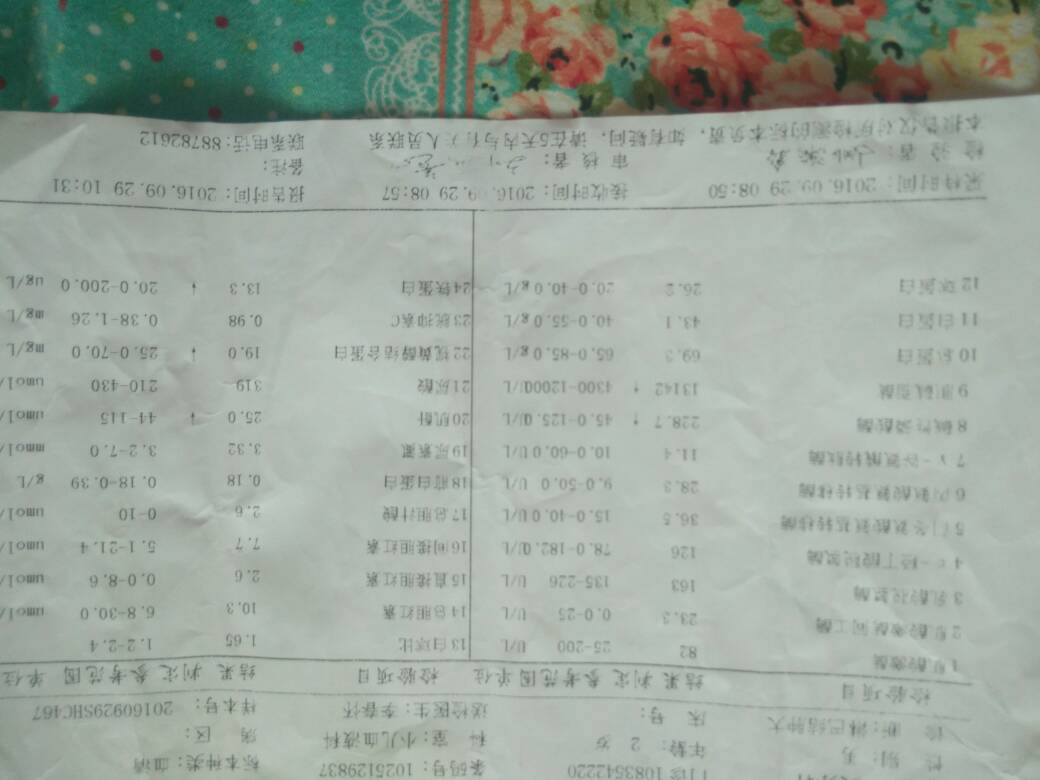 门诊 1083542220 条码号: 1025129837 标本种类: 血清
性 别: 男 年龄: 2 岁 科 室: 小儿血液科 病 区:
诊 断: 淋巴结肿大 床 号: 送检医生: 李春怀 样本号: 20160929SHC467
检验项目 结果 判定 参考范围 单位 检验项目 结果 判定 参考范围 单位
1肌酸激酶 82 25-200 U/L 13白球比 1.65 1.2-2.4
2肌酸激酶同工酶 23.3 0.0-25 U/L 14总胆红素 10.3 6.8-30.0 umol/
3乳酸脱氢酶 163 135-226 U/L 15直接胆红素 2.6 0.0-8.6 umol/
4α-羟丁酸脱氢酶 126 78.0-182.0U/L 16间接胆红素 7.7 5.1-21.4 umol/
5门冬氨酸氨基转移酶 36.5 15.0-40.0U/L 17总胆汁酸 2.6 0-10 umol/
6丙氨酸氨基转移酶 28.3 9.0-50.0 U/L 18前白蛋白 0.18 0.18-0.39 g/L
7γ-谷氨酰转肽酶 11.4 10.0-60.0U/L 19尿素氮 3.32 3.2-7.0 mmol/
8碱性磷酸酶 228.7 ↑ 45.0-125.0U/L 20肌酐 25.0 ↓ 44-115 umol/
9胆碱酯酶 13142 ↑ 4300-12000U/L 21尿酸 319 210-430 umol/
10总蛋白 69.3 65.0-85.0g/L 22视黄醇结合蛋白 19.0 ↓ 25.0-70.0 mg/L
11白蛋白 43.1 40.0-55.0g/L 23胱抑素C 0.98 0.38-1.26 mg/L
12球蛋白 26.2 20.0-40.0g/L 24铁蛋白 13.3 ↓ 20.0-200.0 ug/L
采样时间: 2016.09.29 08:50 接收时间: 2016.09.29 08:57 报告时间: 2016.09.29 10:31
检 验 者: 审 核 者: 备注:
本报告仅对所检测的标本负责, 如有疑问, 请在5天内与有关人员联系 联系电话: 88782612